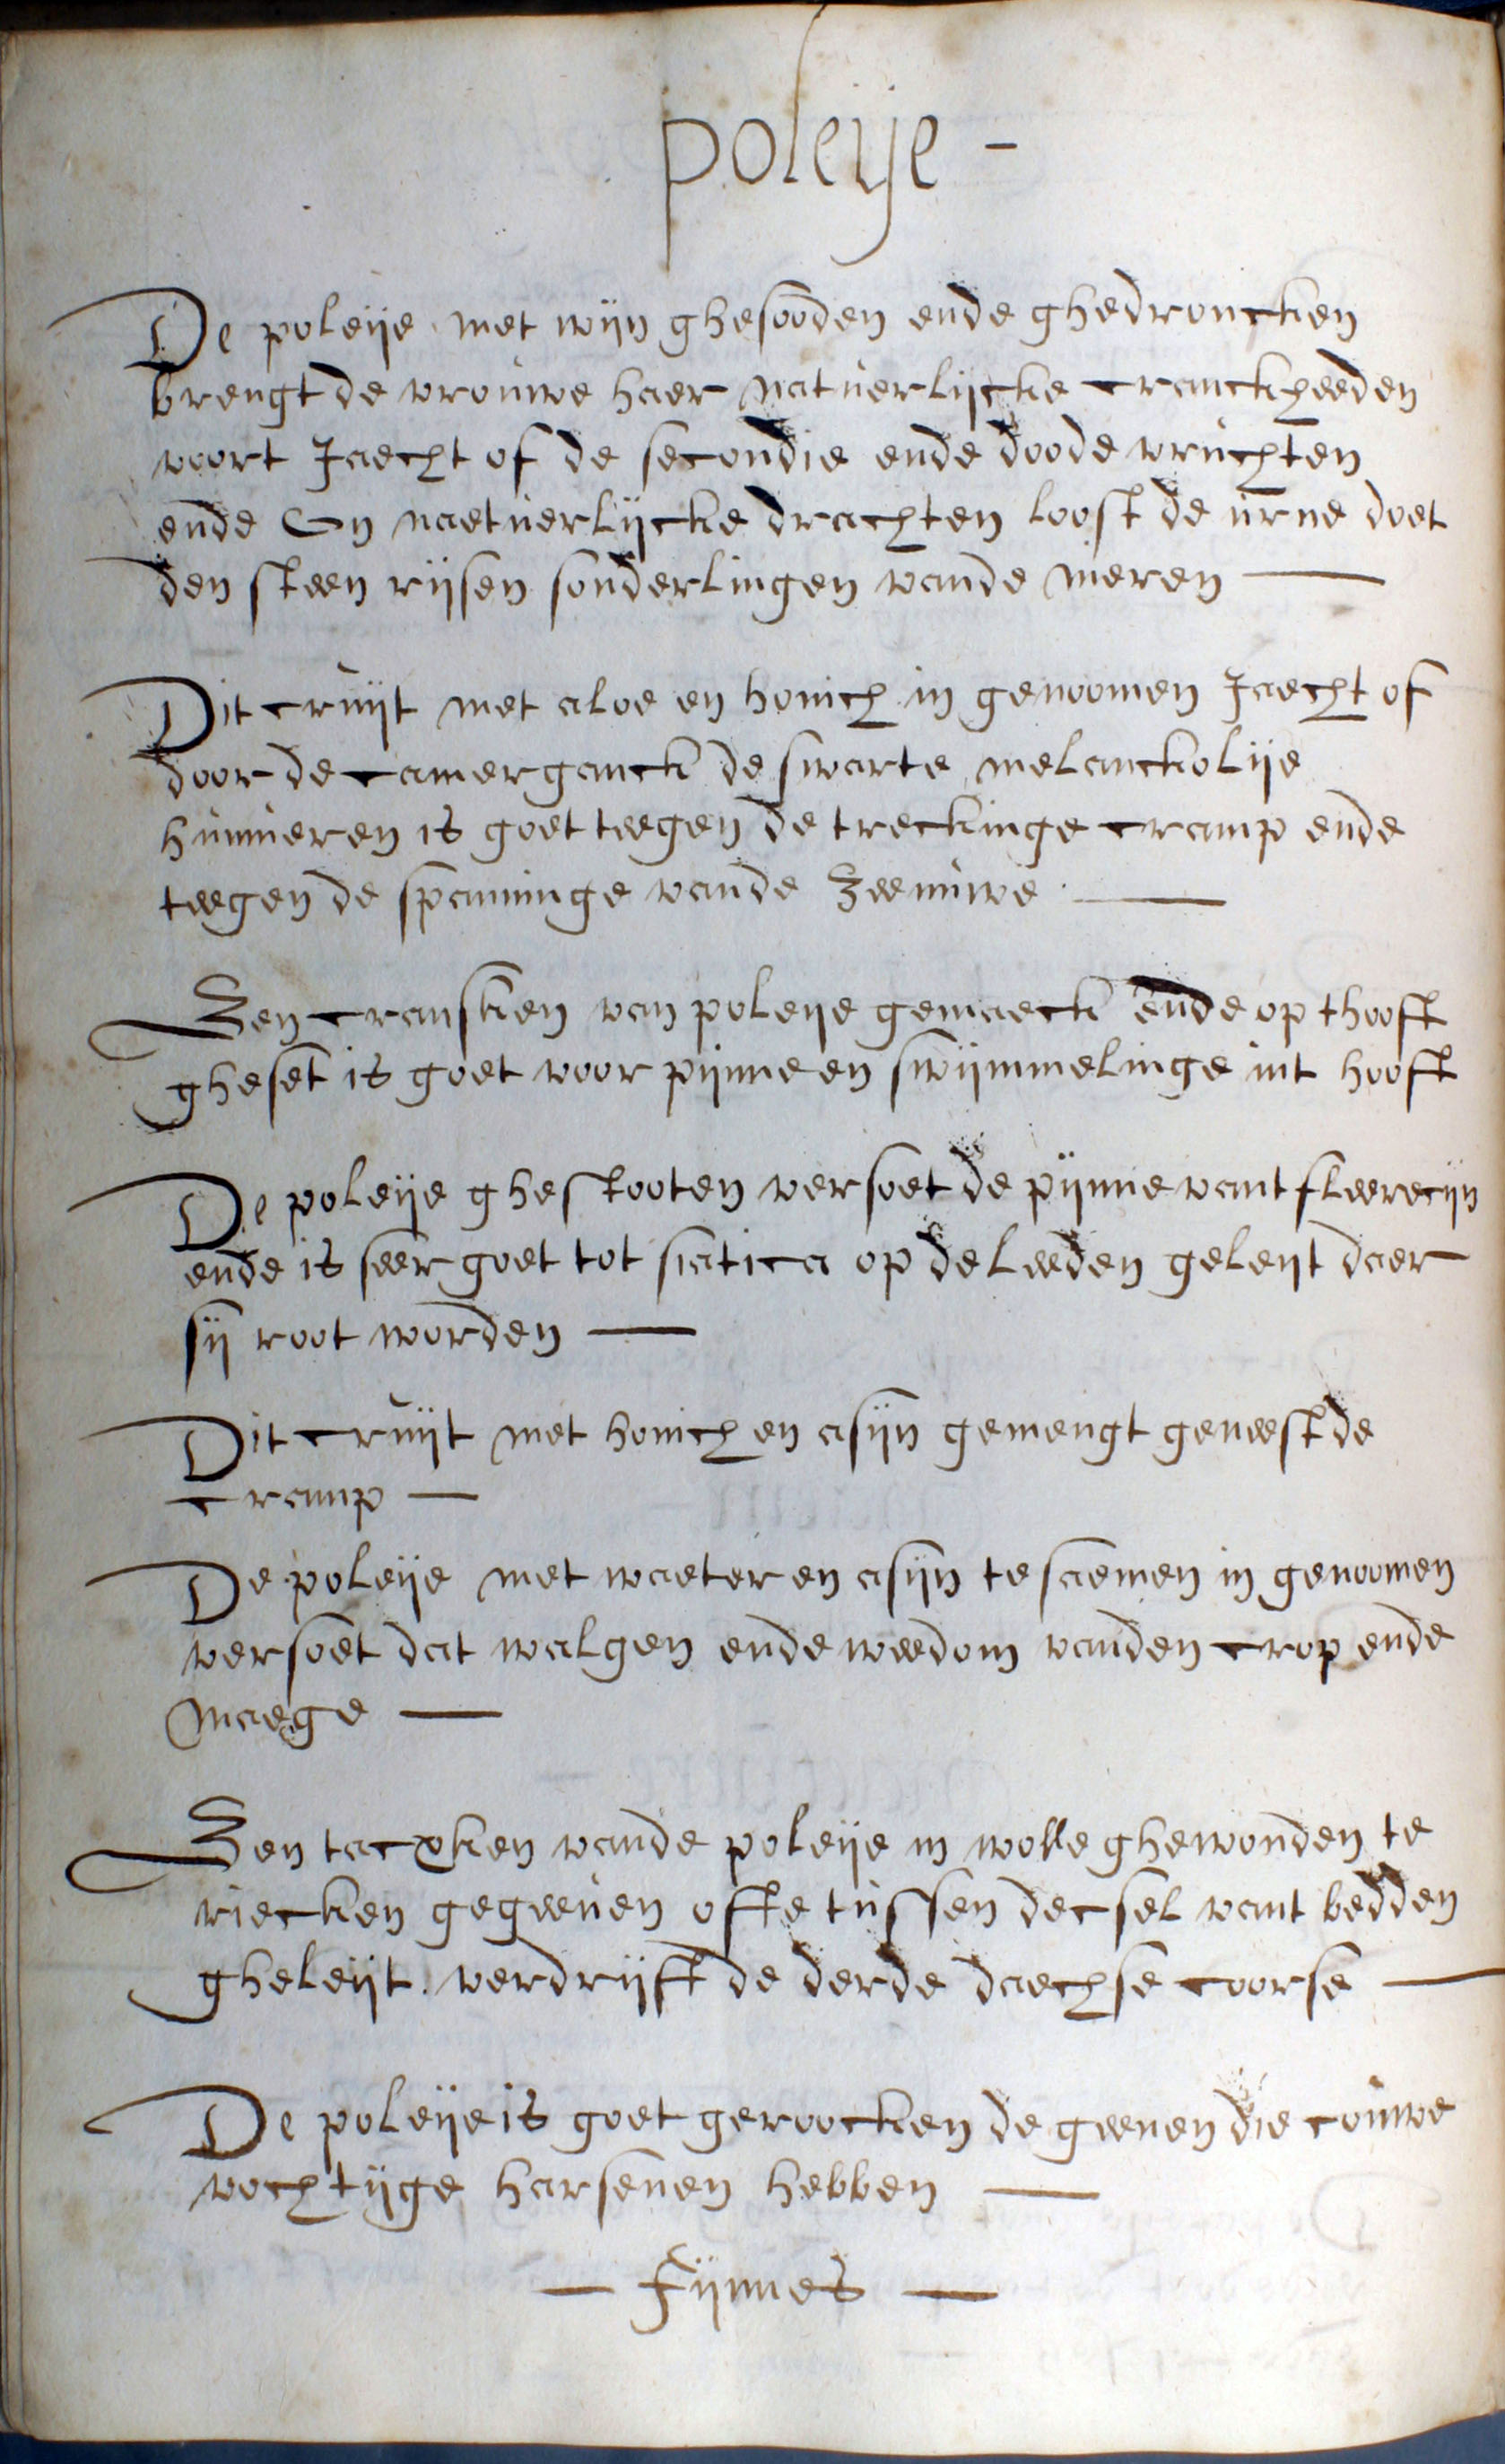 poleije -
De poleije met wijn ghesooden ende ghedroncken
brengt de vrouwe haer natuerlijcke cranckheeden
voort Jaecht of de secondie ende doode vruchten
ende On naetuerlijcke drachten loost de urne doet
den steen rijsen sonderlingen vande nieren —
Dit cruijt met aloe en honich in genoomen Jaecht of
door de camerganck de swarte melanckolije
humueren is goet teegen de treckinge cramp ende
teegen de spanninge vande Zeenuwe —
Een cransken van poleije gemaeck ende op thooft
gheset is goet voor pijnne en swijmmelinge int hooft
De poleije ghestooten versoet de pijnne vant fleerecijn
ende is seer goet tot siatica op de leeden geleijt daer
sij root worden —
Dit cruijt met honich en asijn gemengt geneest de
cramp —
De poleije met waeter en asijn te saemen in genoomen
versoet dat walgen ende weedom vanden crop ende
maege —
Een tacxken vande poleije in wolle ghewonden te
riecken gegeeuen ofte tussen decsel vant bedden
gheleijt. verdrijft de derde daechse coorse —
De poleije is goet geroocken de geenen die couwe
vochtijge harsenen hebben —
— Fijnnes —